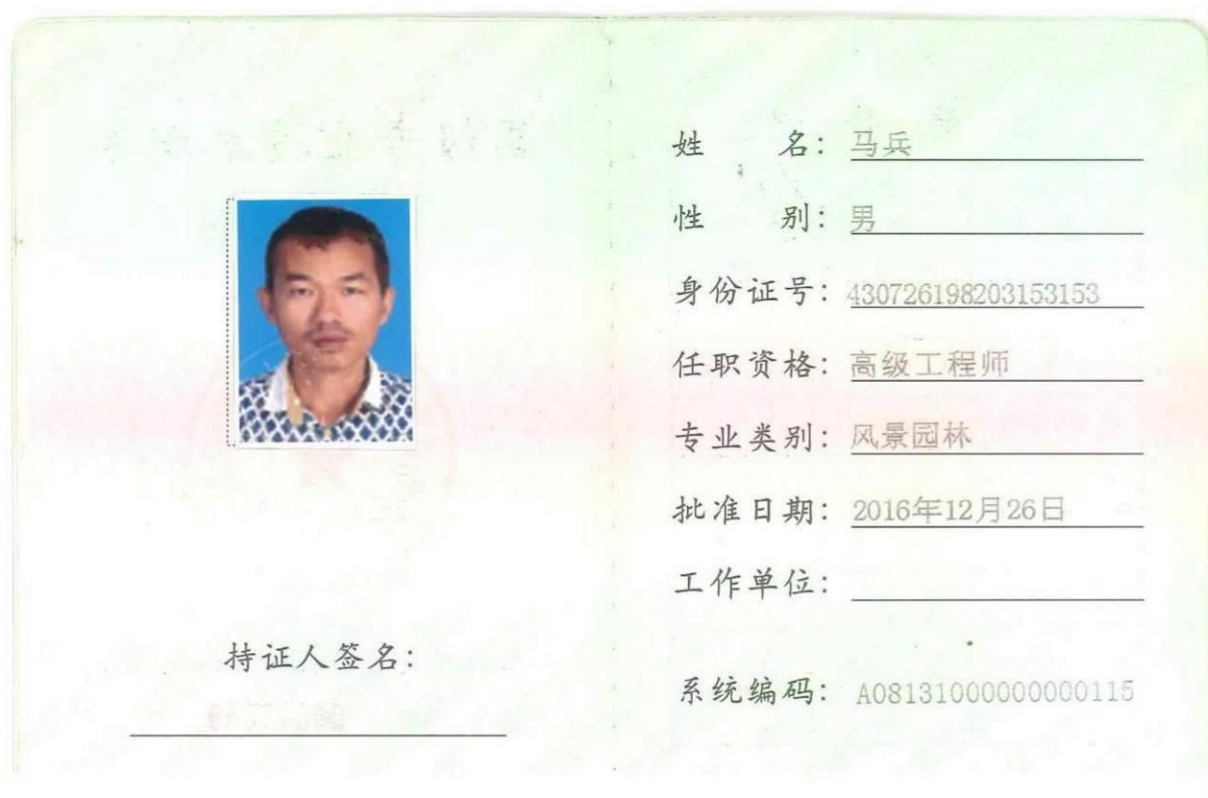 姓名：马兵
性别：男
身份证号：430726198203153153
任职资格：高级工程师
专业类别：风景园林
批准日期：2016年12月26日
工作单位：
持证人签名：
系统编码：A08131000000000115